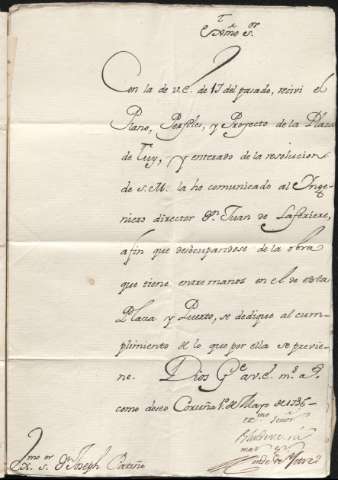 Exmo. Sor.
Con la de V.E. de 17 del pasado, recivi el
Plano, Perfiles, y Proyecto de la Plaza
de Tuy, y enterado de la resolucion
de S.M. la he comunicado al Inge-
niero director Dn. Juan de Laferiere,
afin que desocupandose de la obra
que tiene entre manos en el de esta
Plaza y Puerto, se dedique al cum-
plimiento de lo que por ella se previe-
ne. Dios Ge. a V.E. ms. as.
como deseo Coruña 1o. de Mayo de 1736
Exmo. Señor
Exmo. Sor. Dn. Joseph Patiño